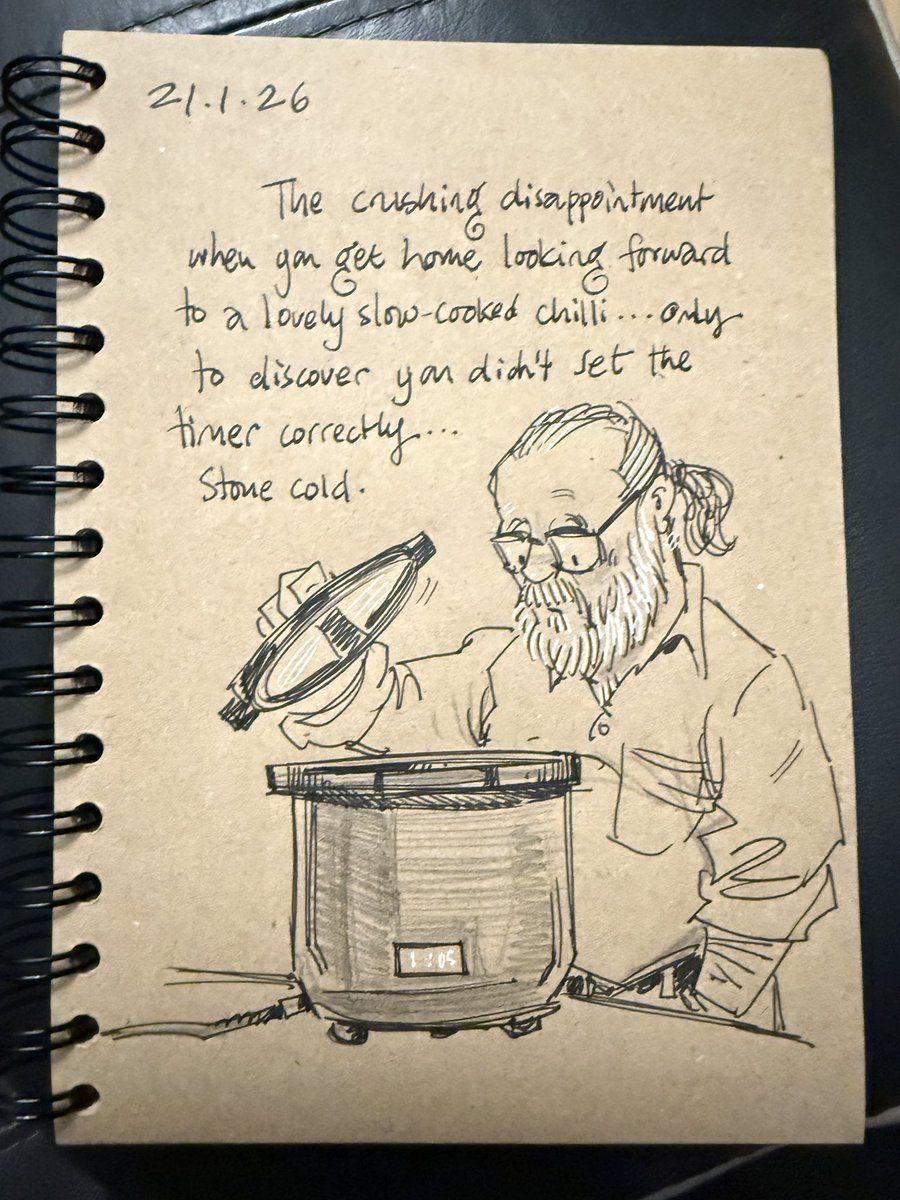 21.1.26
The crushing disappointment
when you get home looking forward
to a lovely slow-cooked chilli... only
to discover you didn't set the
timer correctly...
Stone cold.
1:05